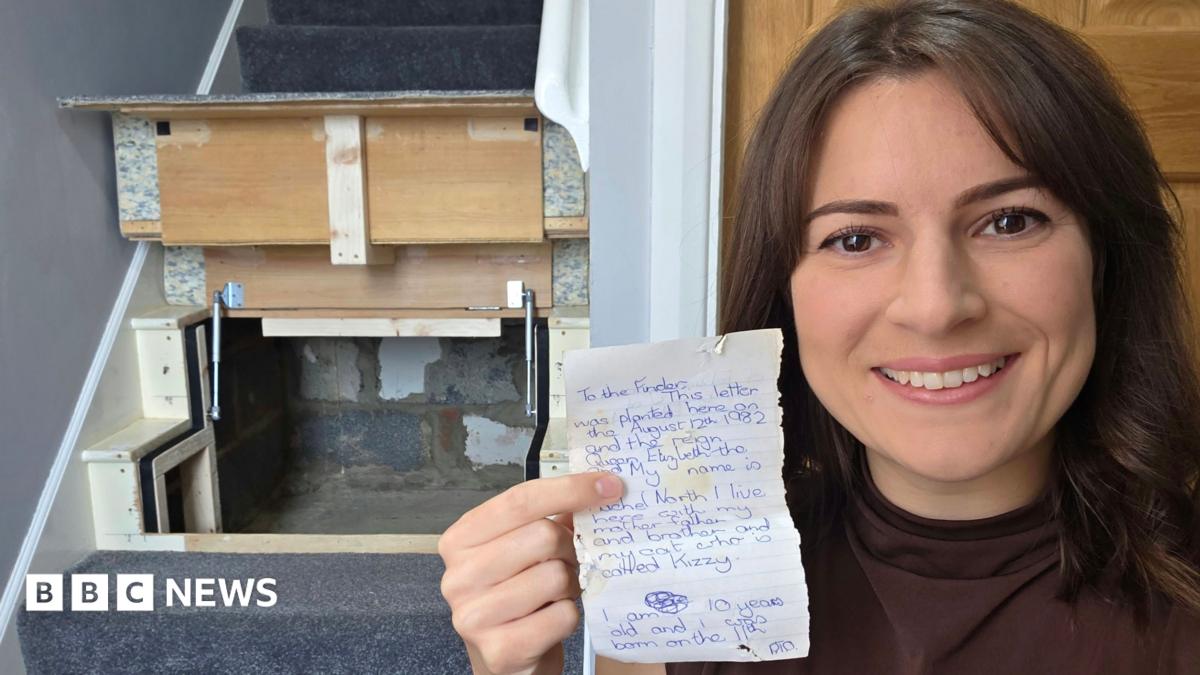 To the Finder.
This letter
was planted here on
the August 12th 1982
and the reign
Queen Elizibeth the
My name is
North I live
here with my
mother father
and brother and
my cat who is
called Kizzy.
I am 10 years
old and I was
born on the 11th
PTO.
BBC NEWS